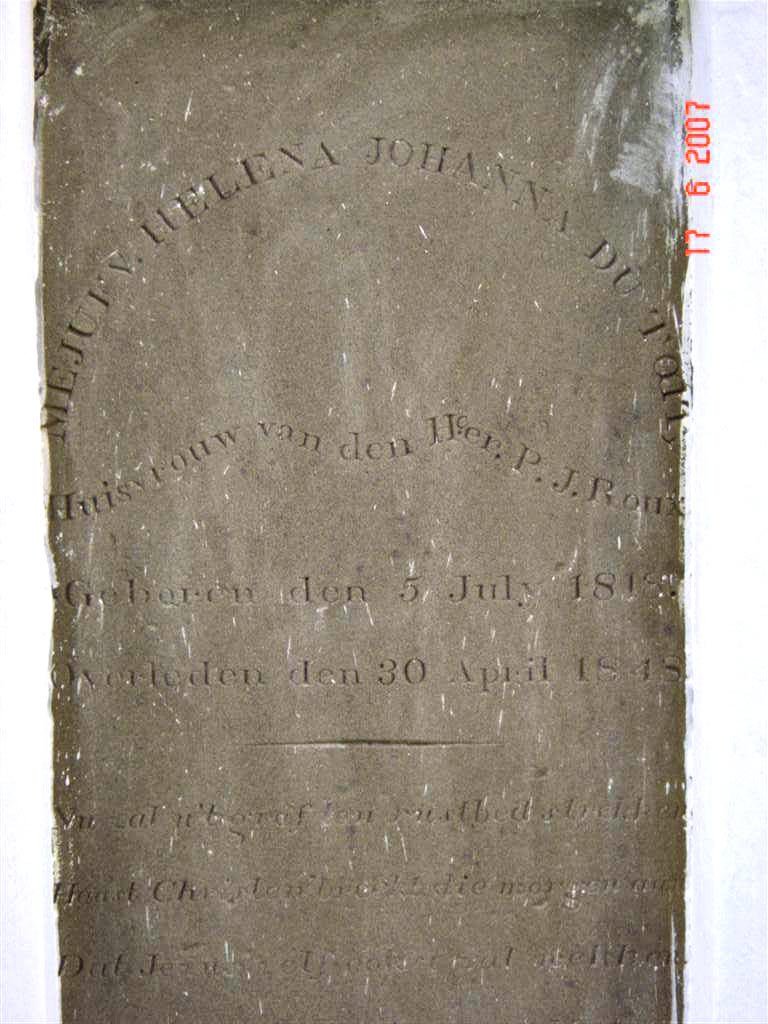 MEJUFV. HELENA JOHANNA DU TOIT,
Huisvrouw van den Heer. P. J. Roux
Geboren den 5 July 1818.
Overleden den 30 April 1848
Nu zal u't graf ten rustbed strekken
Haast Christen breekt die morgen aan
Dat Jezus zelf ook u zal wekken
17 6 2007